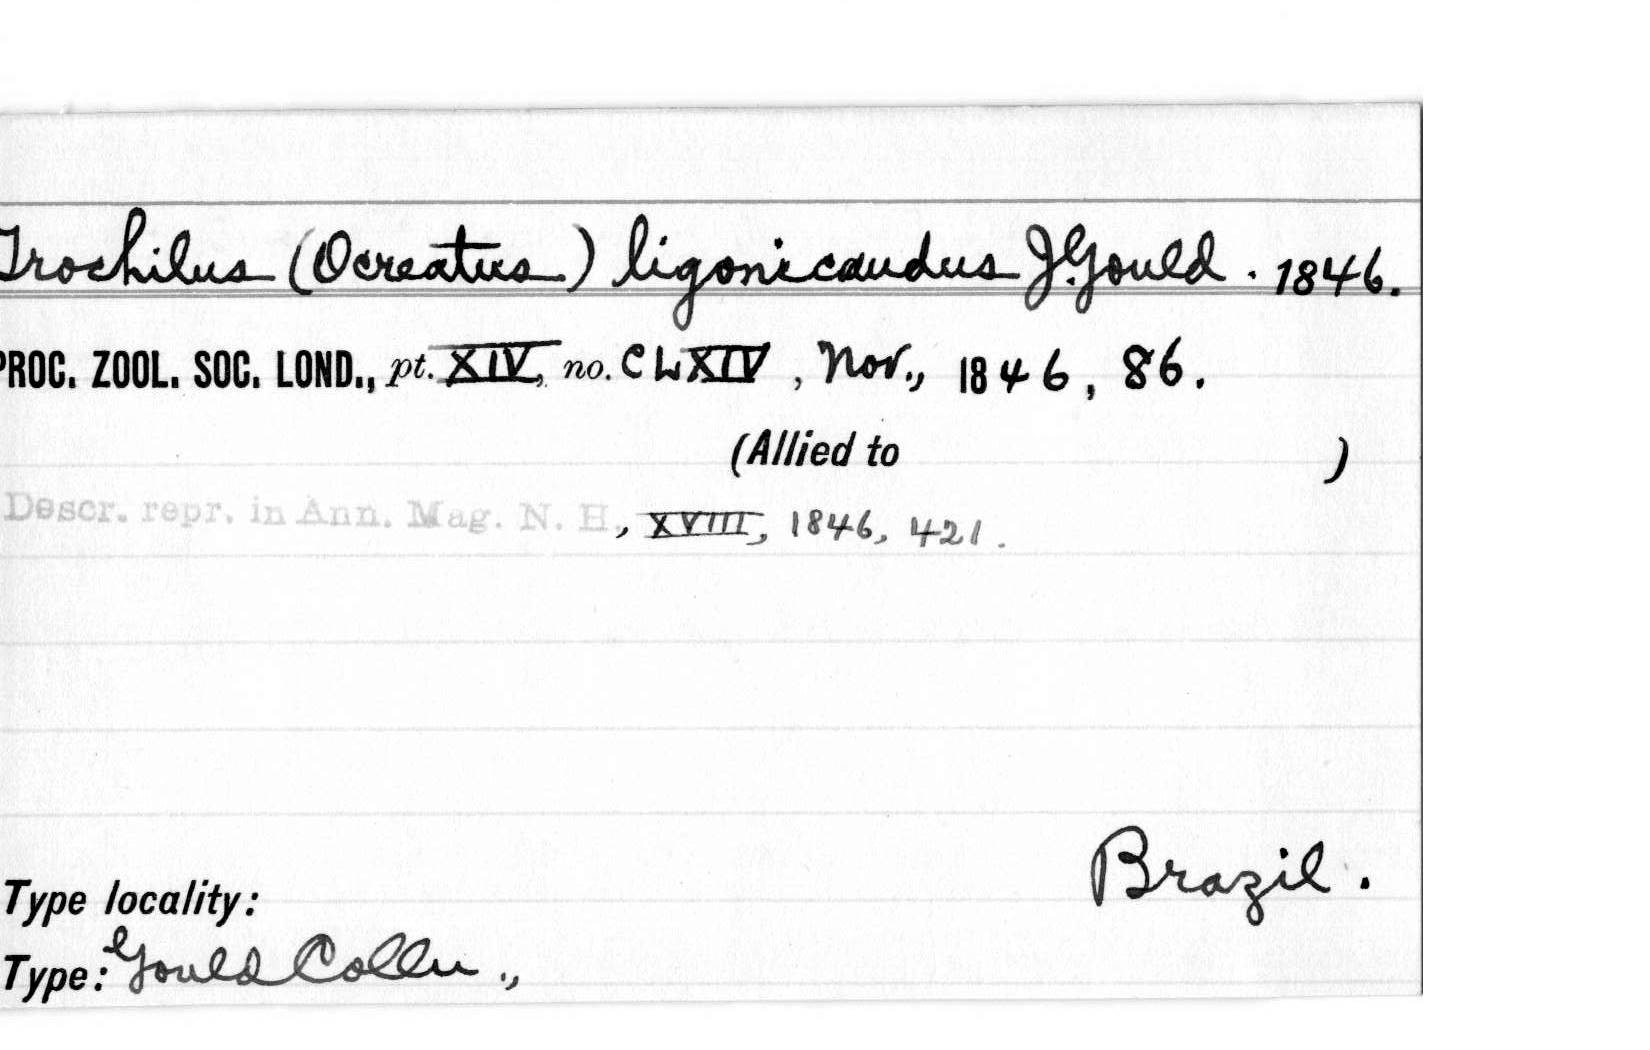 Trochilus (Ocreatus) ligonicaudus J.Gould. 1846.
PROC. ZOOL. SOC. LOND., pt. XIV, no. CLXIV, Nov., 1846, 86.
(Allied to )
Descr. repr. in Ann. Mag. N. H., XVIII, 1846, 421.
Brazil.
Type locality:
Type: Gould Colln.,